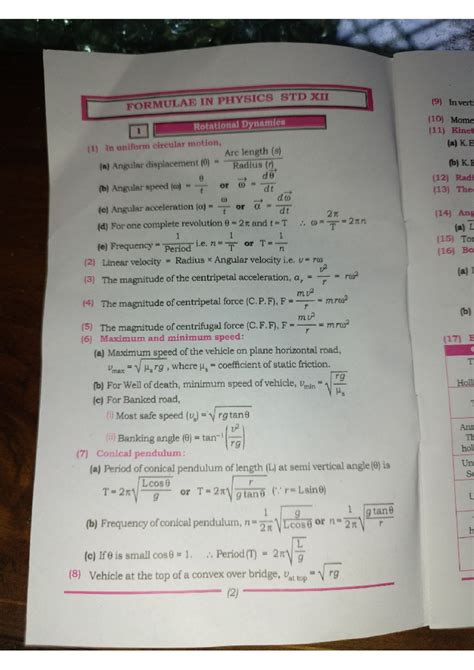 FORMULAE IN PHYSICS STD XII
1 Rotational Dynamics
(1) In uniform circular motion,
(a) Angular displacement (θ) = Arc length (s) / Radius (r)
(b) Angular speed (ω) = θ/t or ω→ = dθ→/dt
(c) Angular acceleration (α) = ω/t or α→ = dω→/dt
(d) For one complete revolution θ = 2π and t = T ∴ ω = 2π/T = 2πn
(e) Frequency = 1/Period i.e. n = 1/T or T = 1/n
(2) Linear velocity = Radius × Angular velocity i.e. v = rω
(3) The magnitude of the centripetal acceleration, aᵣ = v²/r = rω²
(4) The magnitude of centripetal force (C.P.F), F = mv²/r = mrω²
(5) The magnitude of centrifugal force (C.F.F), F = mv²/r = mrω²
(6) Maximum and minimum speed:
(a) Maximum speed of the vehicle on plane horizontal road,
v_max = √(μₛrg), where μₛ = coefficient of static friction.
(b) For Well of death, minimum speed of vehicle, v_min = √(rg/μₛ)
(c) For Banked road,
(i) Most safe speed (vₛ) = √(rg tanθ)
(ii) Banking angle (θ) = tan⁻¹(v²/rg)
(7) Conical pendulum:
(a) Period of conical pendulum of length (L) at semi vertical angle (θ) is
T = 2π√(Lcosθ/g) or T = 2π√(r/g tanθ) (∵ r = Lsinθ)
(b) Frequency of conical pendulum, n = 1/2π √(g/Lcosθ) or n = 1/2π √(g tanθ/r)
(c) If θ is small cosθ = 1. ∴ Period (T) = 2π√(L/g)
(8) Vehicle at the top of a convex over bridge, v_at top = √rg
(2)
(9)
(10)
(11)
(a) K.E
(b) K.
(12)
(13) The
(14)
(a)
(15)
(16)
(a)
(b)
(17)